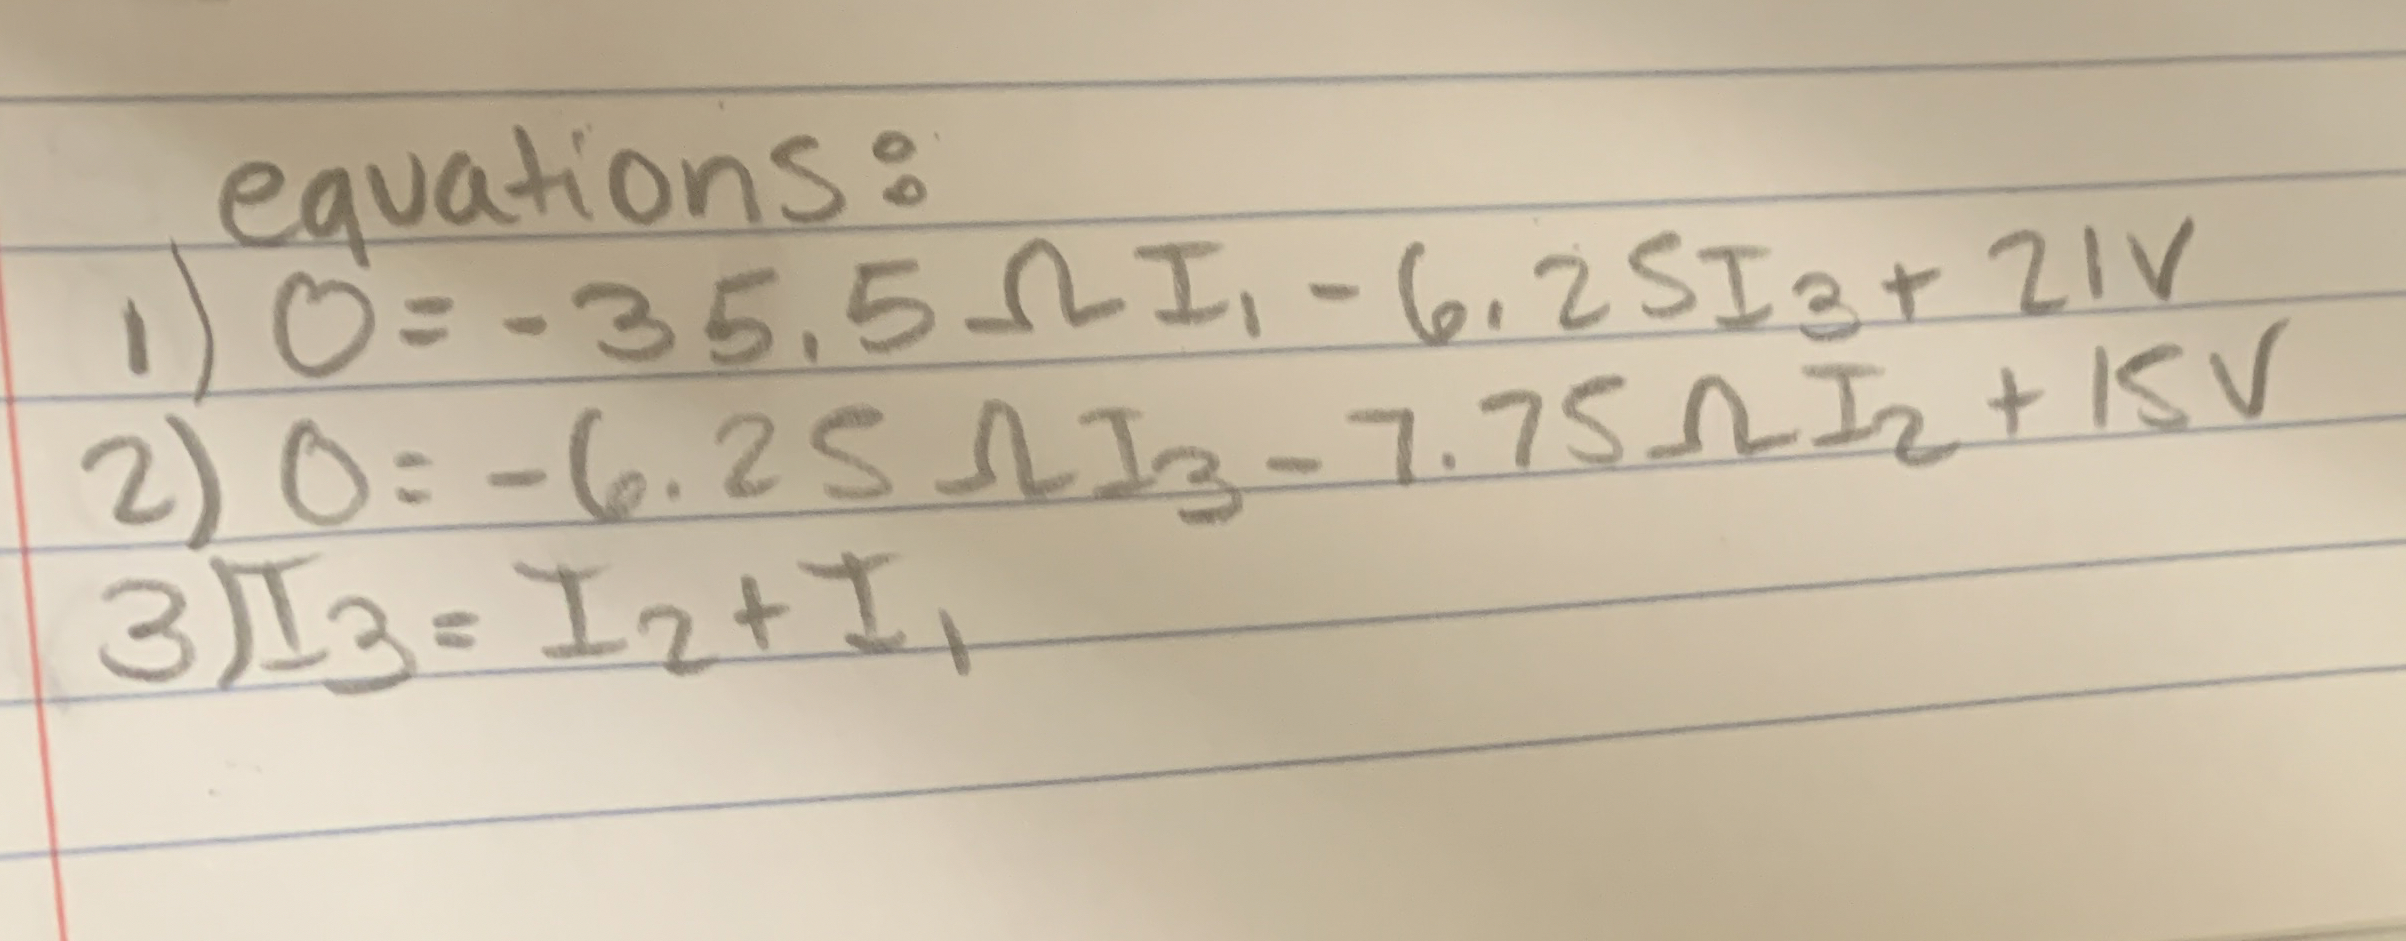 equations:
1) 0 = -35.5 Ω I₁ - 6.25 I₃ + 21V
2) 0 = -6.25 Ω I₃ - 7.75 Ω I₂ + 15V
3) I₃ = I₂ + I₁